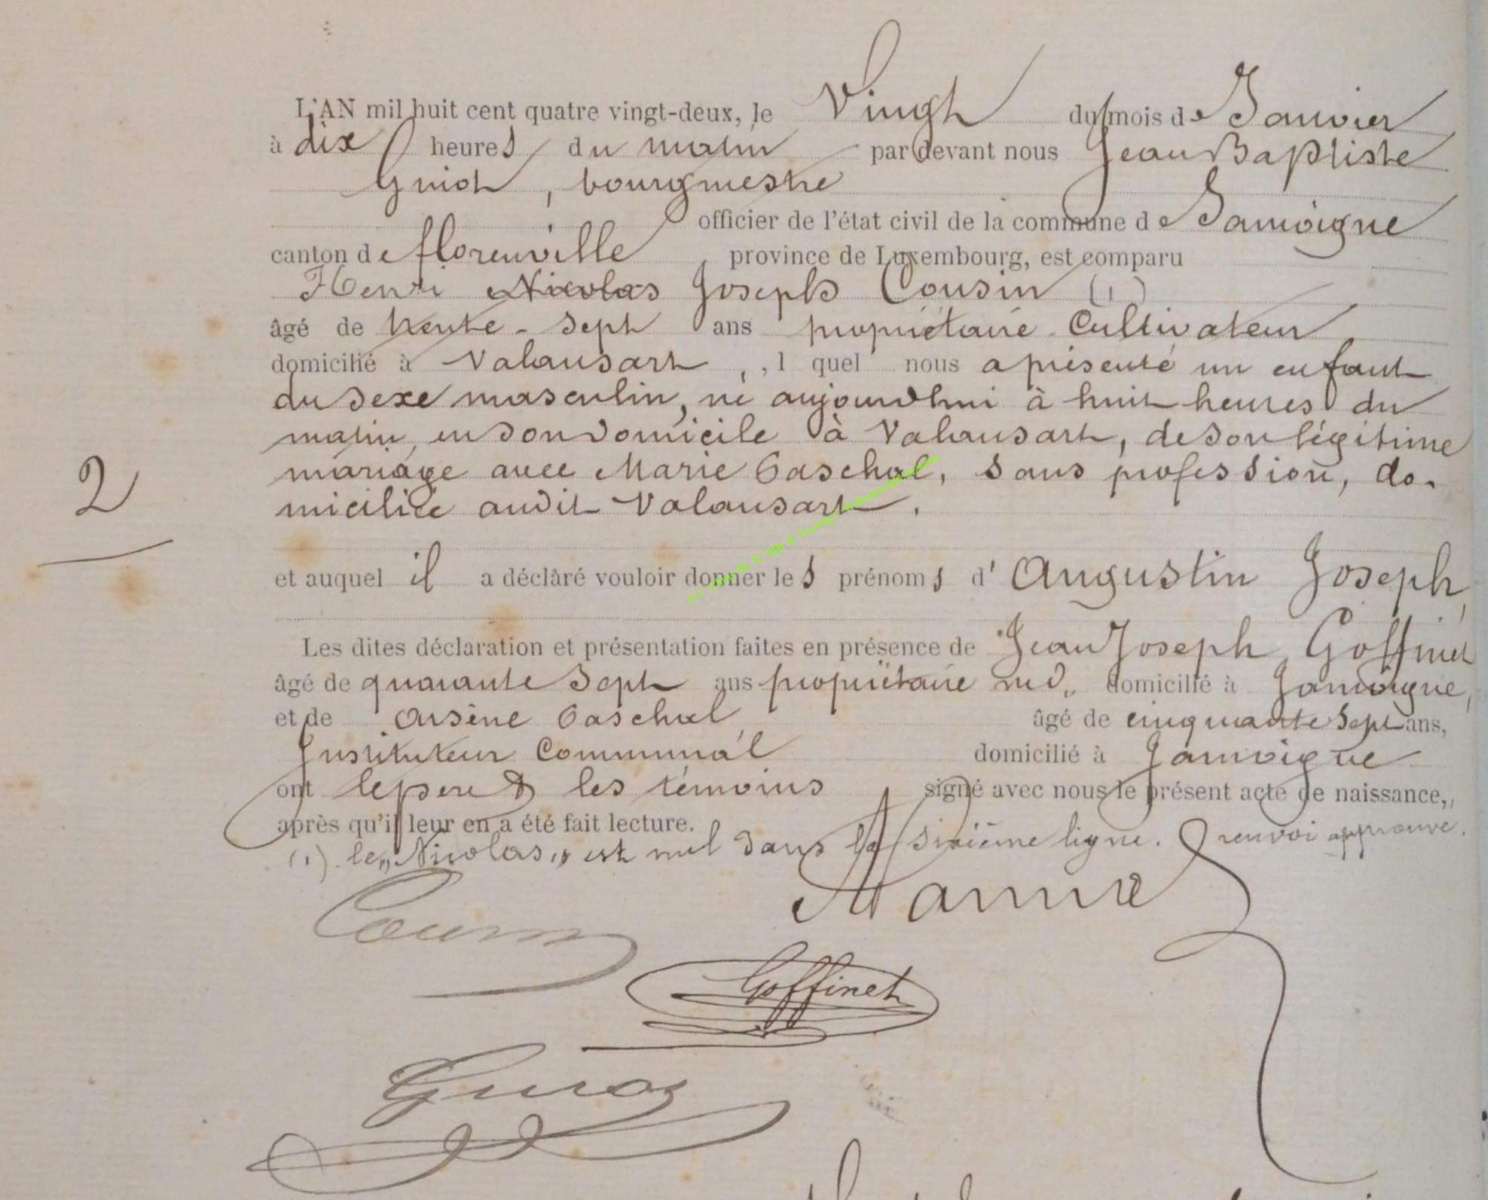 L'AN mil huit cent quatre vingt-deux, le Vingt du mois de Janvier
à dix heures du matin par devant nous Jean Baptiste
Guiot, bourgmestre
officier de l'état civil de la commune de Jamoigne
canton de florenville province de Luxembourg, est comparu
Henri Nicolas Joseph Cousin (1)
âgé de trente-sept ans propriétaire Cultivateur
domicilié à Valansart, , l quel nous a présenté un enfant
du sexe masculin, né aujourdhui à huit heures du
matin, en son domicile à Valansart, de son légitime
mariage avec Marie Paschal, sans profession, do-
2
miciliée audit Valansart.
et auquel il a déclaré vouloir donner les prénoms d' Augustin Joseph,
Les dites déclaration et présentation faites en présence de Jean Joseph Goffinet
âgé de quarante sept ans propriétaire domicilié à Jamoigne,
et de Arsène Paschal âgé de cinquante sept ans,
Instituteur Communal domicilié à Jamoigne
ont le père & les témoins signé avec nous le présent acte de naissance,
après qu'il leur en a été fait lecture.
(1) le „Nicolas„ est nul dans la sixième ligne. renvoi approuvé.
Cousin
Goffinet
Guiot